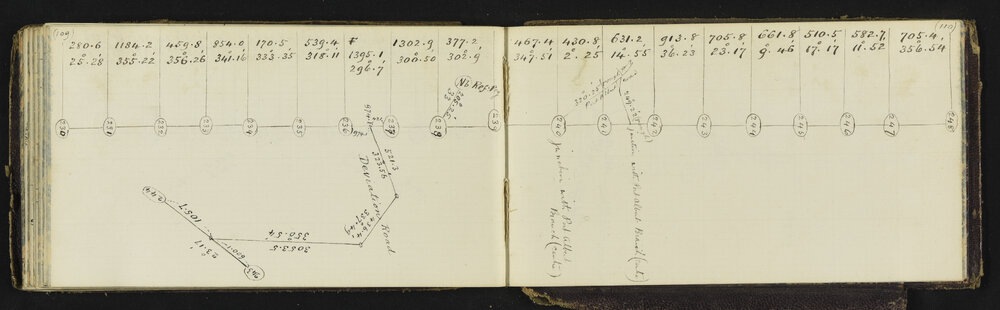 (109)
280.6 1184.2 459.8 854.0 170.5 539.4 F 1302.9 377.2
25.28 355.22 356.26 341.16 333.35 318.11 1395.1 300.50 302.9
296.7
No Ref. Pg
230 231 232 233 234 235 236 237 238 239
521.3
323.56
Deviation Road
476.4
337.49
350.54
3053.5
244
105.7
23.11
600.1
(110)
467.4 430.8 631.2 913.8 705.8 661.8 510.5 582.7 705.4
347.51 2.25 14.55 36.23 23.17 9.46 17.17 11.52 356.54
240 241 242 243 244 245 246 247 248
junction with Pt Albert
Branch (late)
junction with Pt Albert Branch (late)